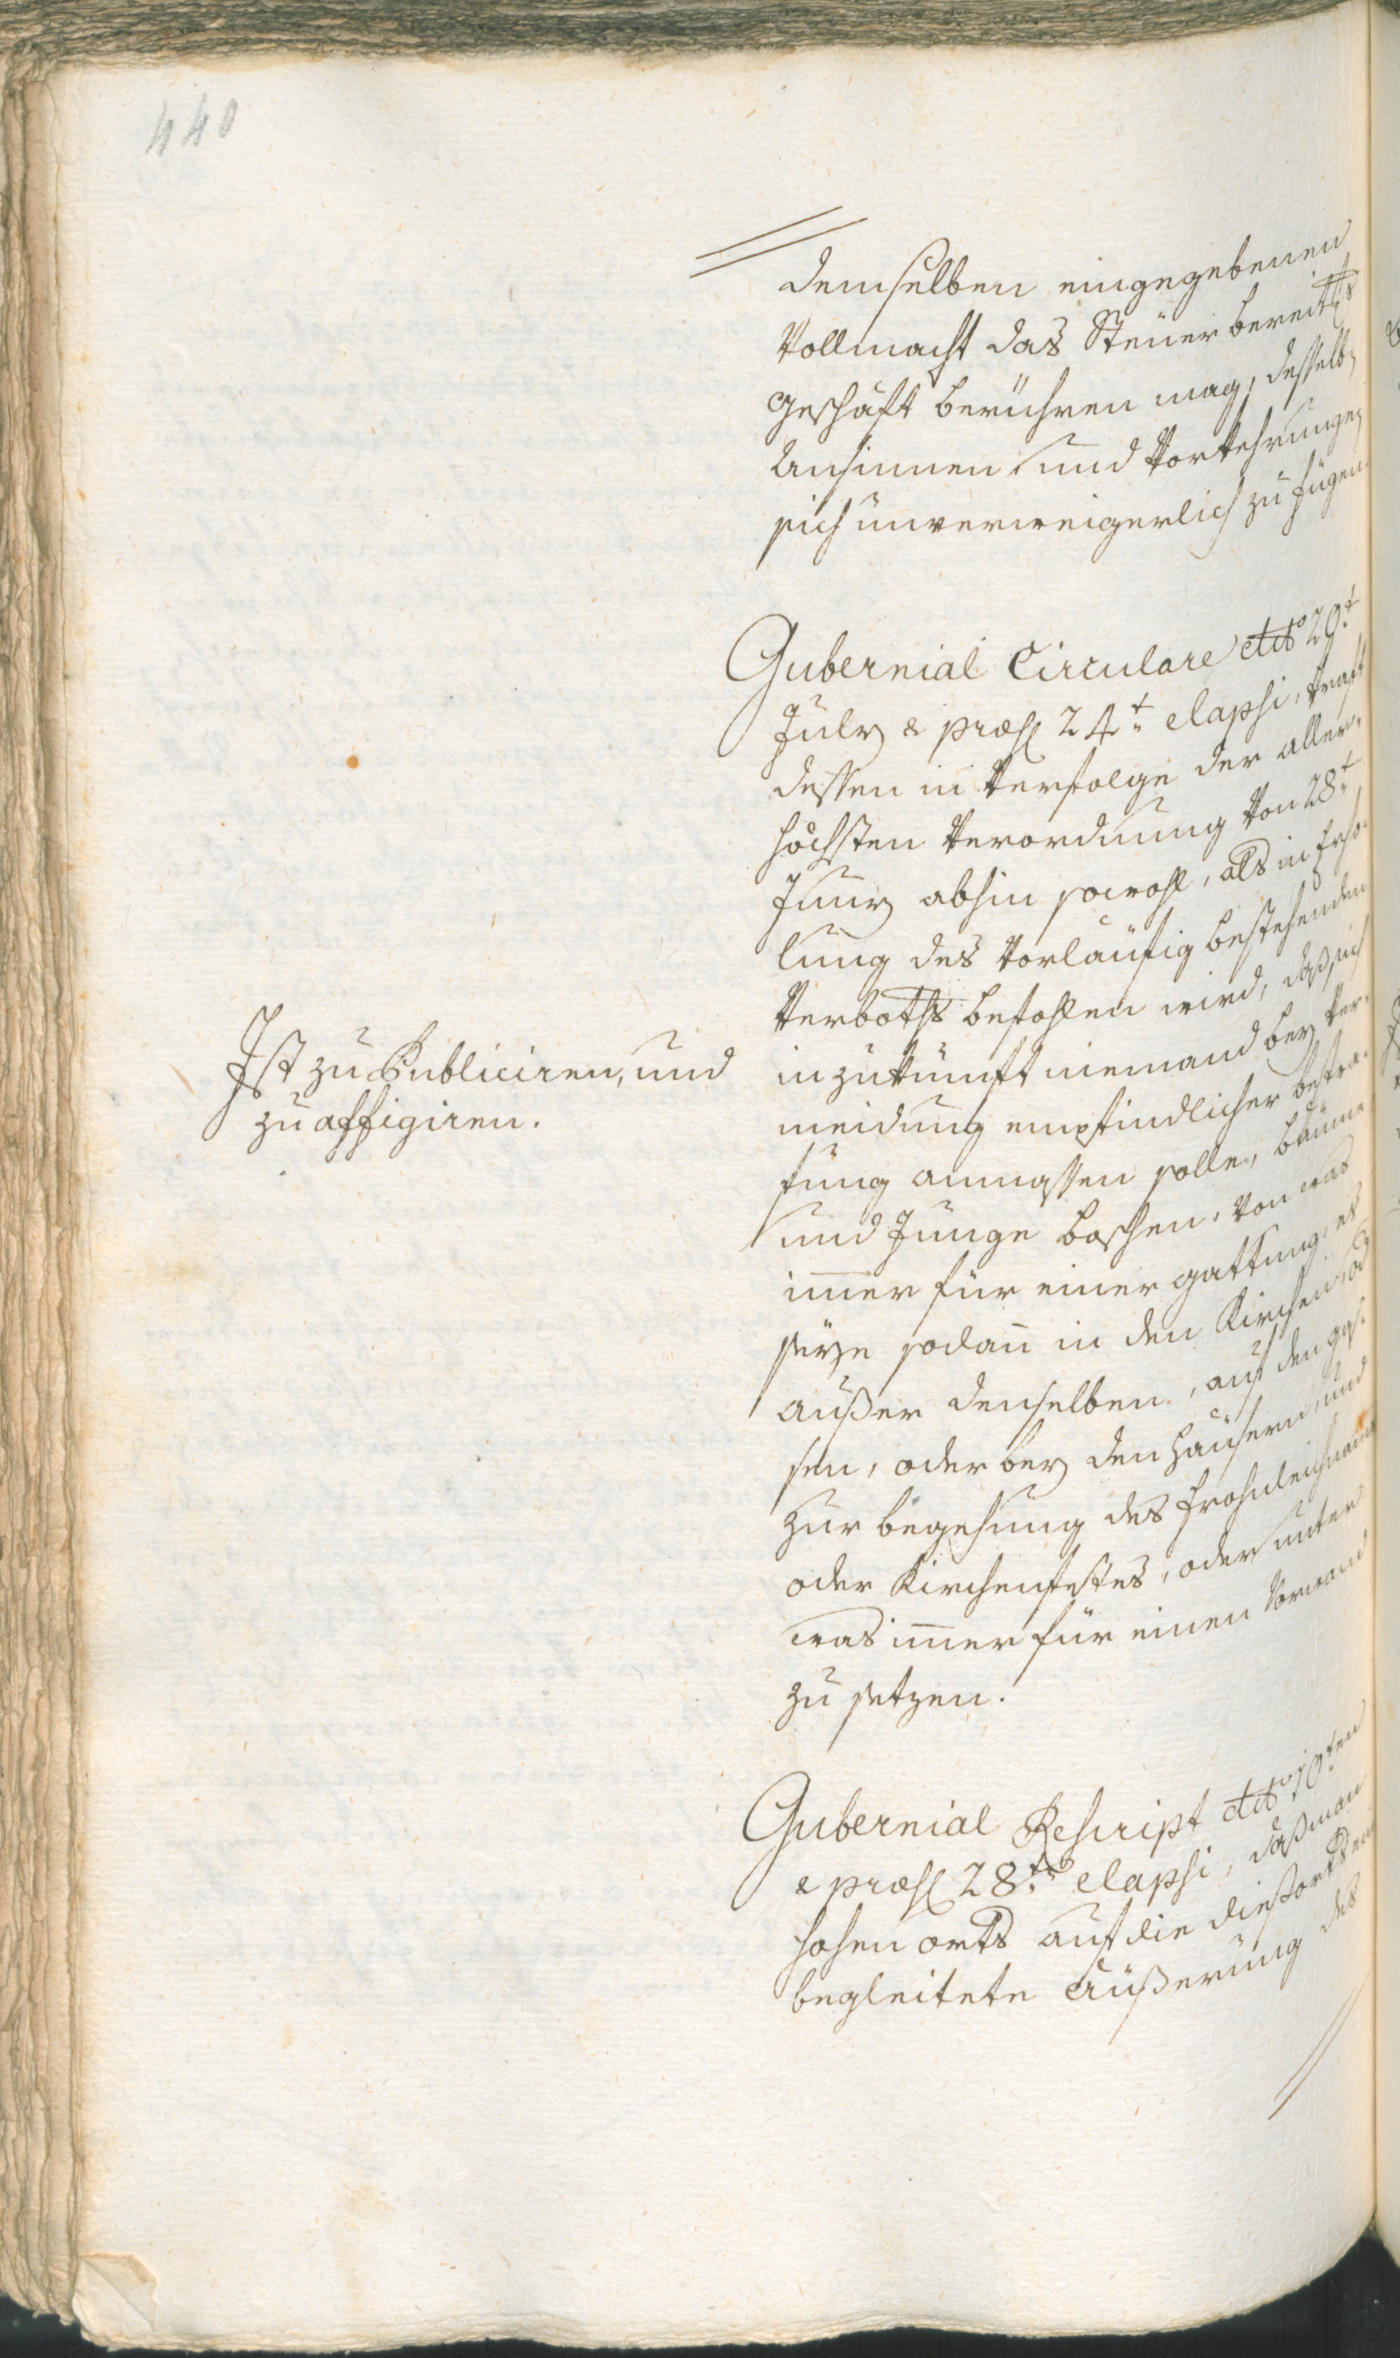 440
demselben eingegebenen
Vollmacht das Steüer bereitts
geschäft berühren mag, desselb
Ansinnen, und Vorkehrungen
sich ünverweigerlich zu fügen.
Gubernial Circulare ddto 29t
July & præs 24t elapsi, kraft
dessen in Verfolge der aller-
höchsten Verordnung von 28t
Juny abhin sowohl, als in Erho-
lung des Vorläufig bestehenden
Verboths befohlen wird, daß sich
in zükünft niemand bey Ver-
meidung empfindlicher bestra-
fung anmassen solle, bäume
und Junge boschen, von was
imer für einer gattung, es
seye sodan in den Kirchen, od
außer denselben, auf den gas-
sen, oder bey den haüsern, und
zur begehung des frohnleichnams
oder Kirchenfestes, oder unter
was imer für einen Vorwand
zu setzen.
Ist zu Publiciren, und
zu affigiren.
Gubernial Rescript ddto 10ten
& præs 28ten elapsi, daß man
hohen orts auf die dießorts ein
begleitete aüßerüng des